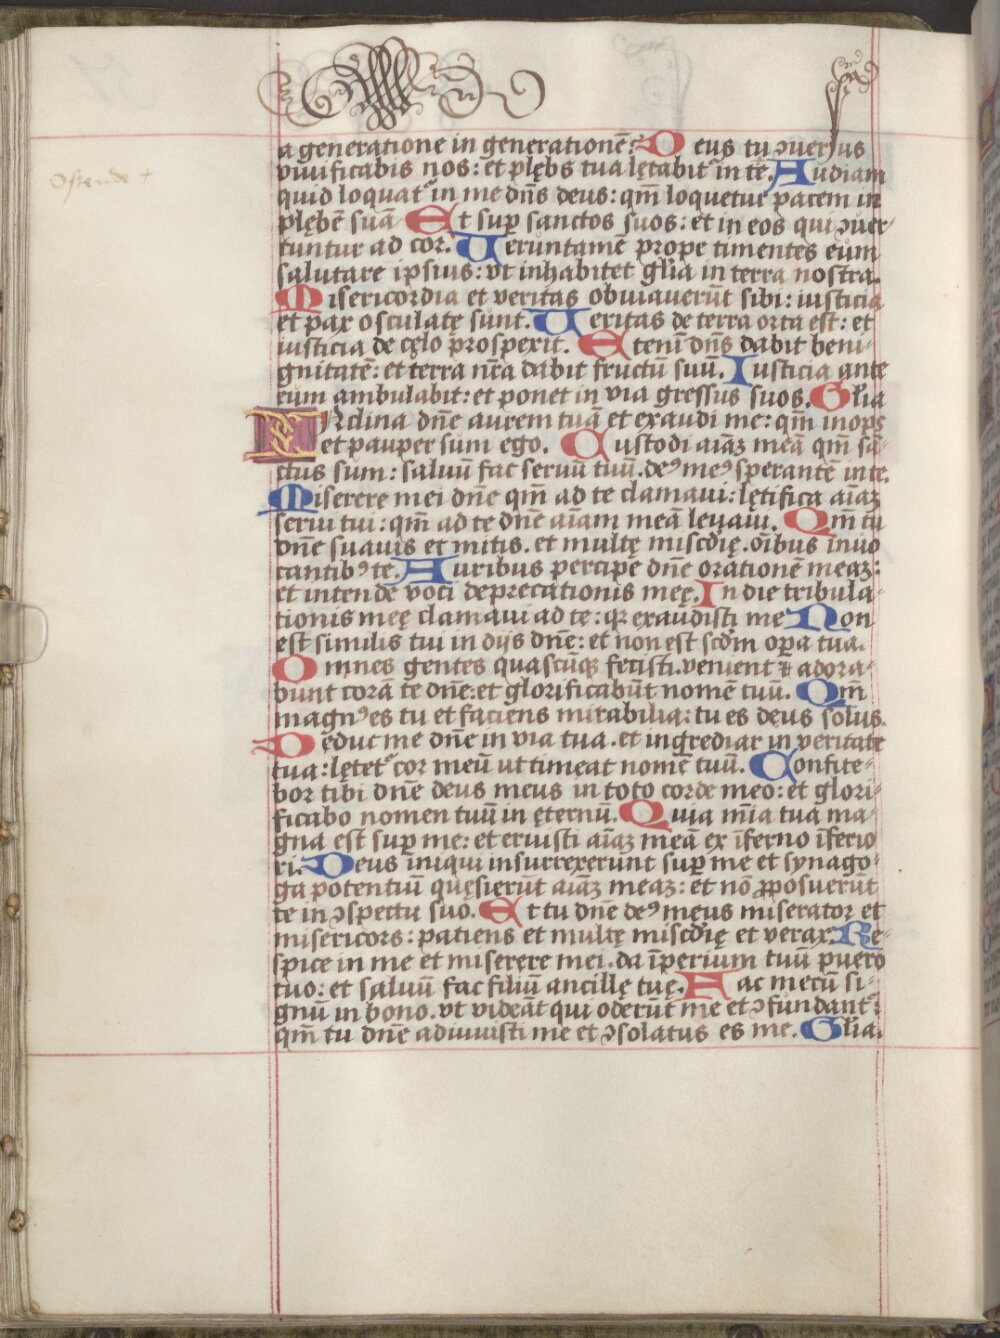 a generatione in generationē? Deus tu ɔuersus
viuificabis nos: et plębs tua lętabit᷑ in te. Audiam
Ostende +
quid loquat᷑ in me dn̄s deus: qm̄ loquetur pacem in
plębē suā Et sup̱ sanctos suos: et in eos qui ɔuer⸗
tuntur ad cor. Ueruntamē prope timentes eum
salutare ipsius: vt inhabitet gl̄ia in terra nostra.
Misericordia et veritas obuiauerūt sibi: iusticia
et pax osculatę sunt. Ueritas de terra orta est: et
iusticia de cęlo prospexit. Etenī dn̄s dabit beni⸗
gnitatē: et terra nr̄a dabit fructū suū. Iusticia ante
eum ambulabit: et ponet in via gressus suos. Gl̄ia
INclina dn̄e aurem tuā et exaudi me: qm̄ inops
et pauper sum ego. Custodi aīaꝫ meā qm̄ sā⸗
ctus sum: saluū fac seruū tuū. deꝰ meꝰ sperantē in te.
Miserere mei dn̄e qm̄ ad te clamaui: lętifica aīaꝫ
serui tui: qm̄ ad te dn̄e aīam meā leuaui. Qm̄ tu
dn̄e suauis et mitis. et multę miscdię. oībus inuo
cantibꝰ te. Auribus percipe dn̄e orationē meaꝫ:
et intende voci deprecationis meę. In die tribula⸗
tionis meę clamaui ad te: qꝛ exaudisti me Non
est similis tui in dijs dn̄e: et non est scd̄m op̱a tua.
Omnes gentes quascūqꝫ fecisti. venient ⁊ adora⸗
bunt corā te dn̄e: et glorificabūt nomē tuū. Qm̄
magnꝰ es tu et faciens mirabilia: tu es deus solus.
Deduc me dn̄e in via tua. et ingrediar in veritate
tua: lętet᷑ cor meū ut timeat nomē tuū. Confite⸗
bor tibi dn̄e deus meus in toto corde meo: et glori⸗
ficabo nomen tuū in ęternū. Quia mīa tua ma⸗
gna est sup̱ me: et eruisti aīaꝫ meā ex īferno īferio
ri. Deus iniqui insurrexerunt sup̱ me et synago⸗
ga potentiū quęsierūt aīaꝫ meaꝫ: et nō ꝓposuerūt
te in ɔspectu suo. Et tu dn̄e deꝰ meus miserator et
misericors: patiens et multę miscdię et verax. Re⸗
spice in me et miserere mei. da īperium tuū puero
tuo: et saluū fac filiū ancillę tuę. Fac mecū si⸗
gnū in bono. vt videāt qui oderūt me et ɔfundant᷑:
qm̄ tu dn̄e adiuuisti me et ɔsolatus es me. Gl̄ia.